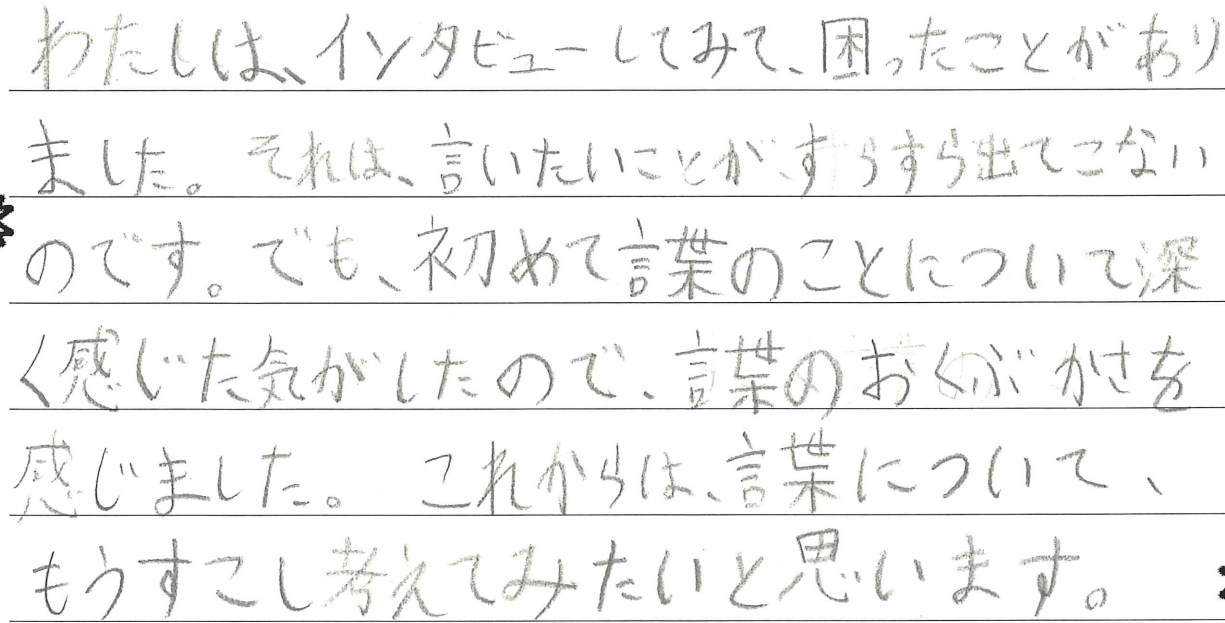 わたしは、インタビューしてみて、困ったことがあり
ました。それは、言いたいことがすらすら出てこない
のです。でも、初めて言葉のことについて深
く感じた気がしたので、言葉のおくぶかさを
感じました。これからは、言葉について、
もうすこし考えてみたいと思います。